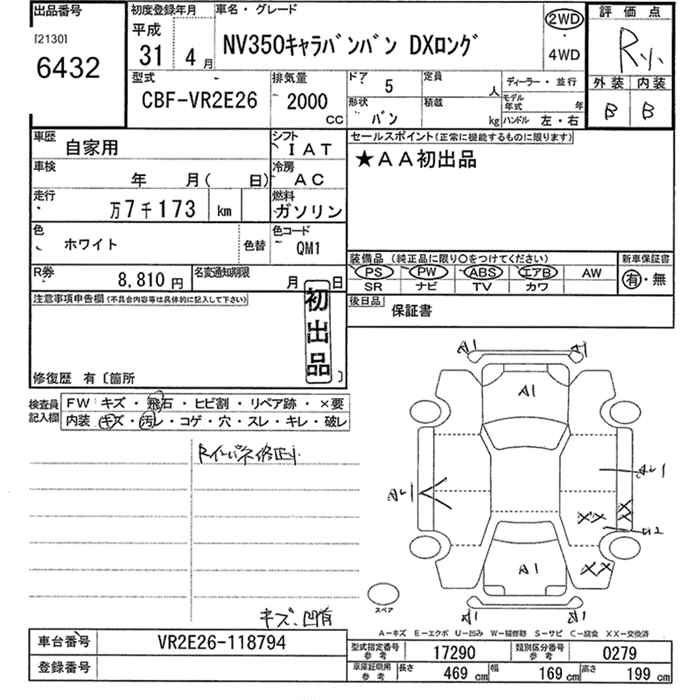 出品番号
[2130]
6432
初度登録年月
平成
31年 4月
車名・グレード
NV350キャラバンバン DXロング
2WD
・
4WD
評価点
R小
外装 内装
B B
型式
CBF-VR2E26
排気量
2000 CC
ドア 5
形状 バン
定員 人
積載 kg
ディーラー・並行
モデル年式 年
ハンドル 左・右
車歴
自家用
シフト
IAT
車検
年 月( 日)
冷房
AC
走行
万7千173 km
燃料
ガソリン
色
ホワイト
色替
色コード
QM1
R券
8,810 円
名変通知期限
月 日
セールスポイント(正常に機能するものに限ります)
★AA初出品
装備品 (純正品に限り〇をつけてください)
PS PW ABS エアB AW
SR ナビ TV カワ
新車保証書
有・無
後日品
保証書
注意事項申告欄(不具合内容等は具体的に記入して下さい)
初出品
修復歴 有〔箇所 〕
検査員記入欄
FW キズ・飛石・ヒビ割・リペア跡・×要
内装 キズ・汚レ・コゲ・穴・スレ・キレ・破レ
キズ、凹有
A1 A1
A1
XX
XX
A1
A1 A1
スペア
A-キズ E-エクボ U-凹み W-補修跡 S-サビ C-腐食 XX-交換済
車台番号
VR2E26-118794
登録番号
型式指定番号 参考
17290
類別区分番号 参考
0279
車庫証明用 参考
長さ 469cm 幅 169cm 高さ 199cm